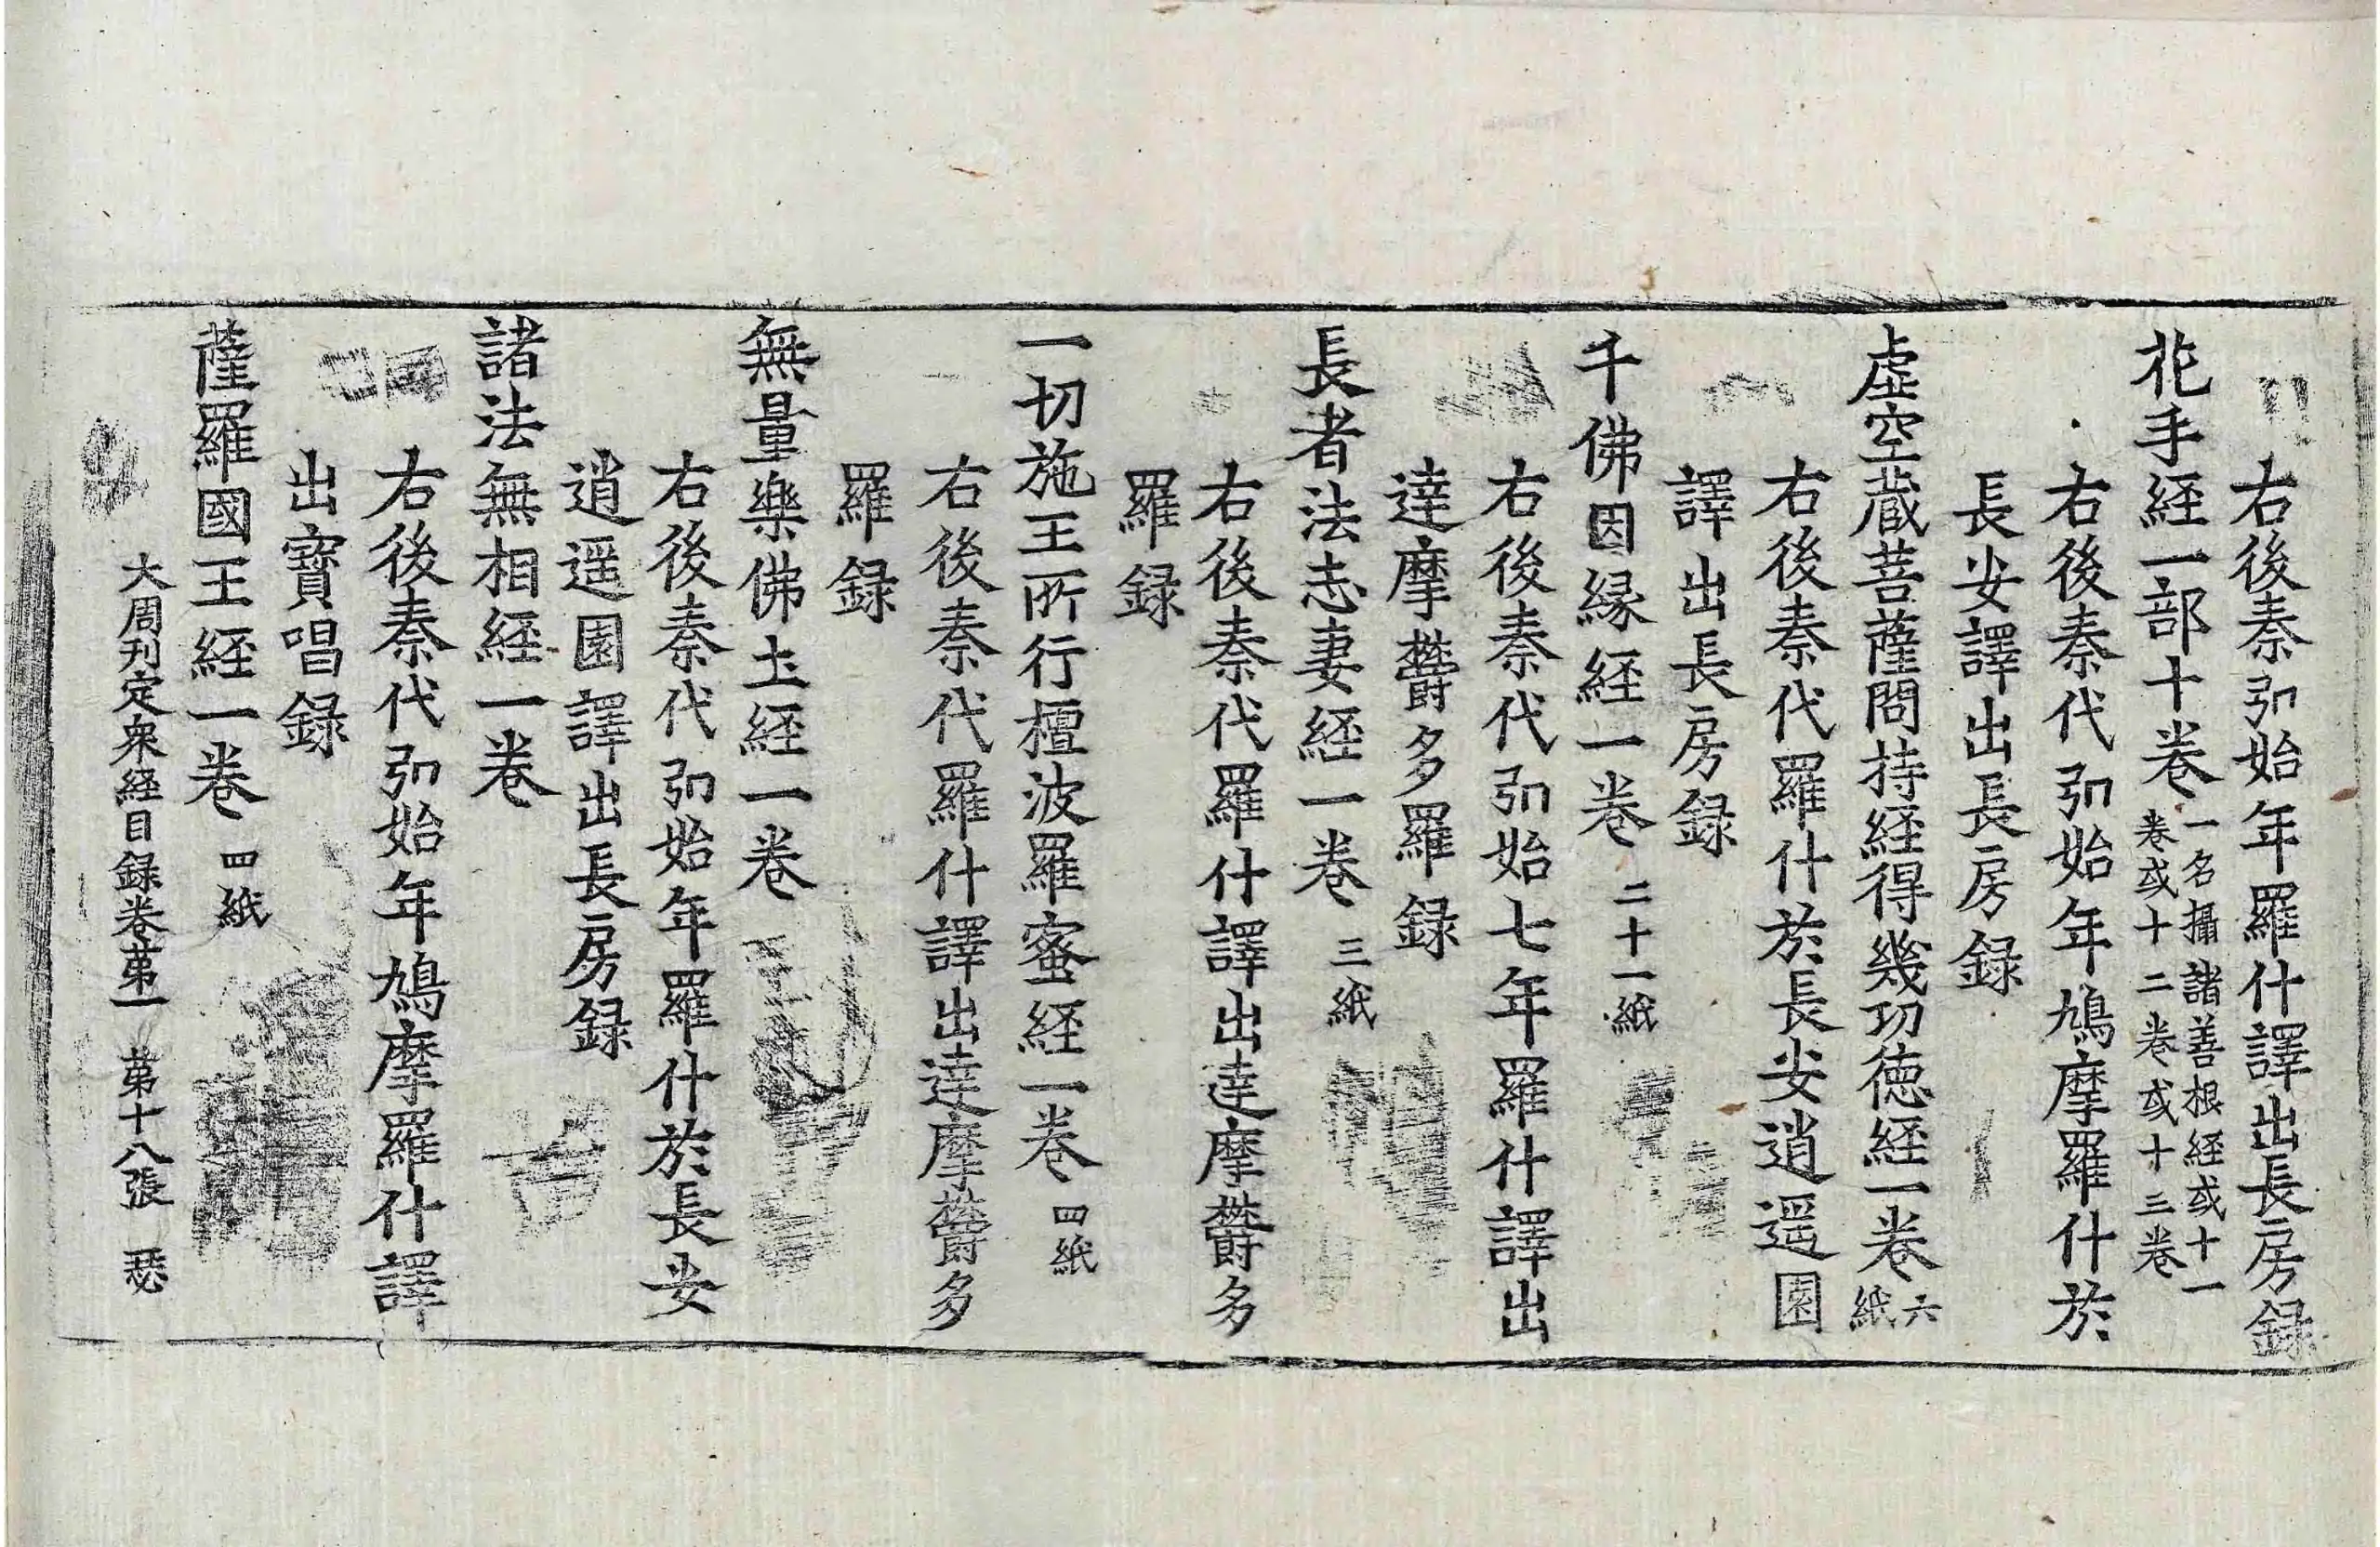 右後秦弘始年羅什譯出長房録
花手経一部十巻一名攝諸善根経或十一
巻或十二巻或十三巻
右後秦代弘始年鳩摩羅什於
長安譯出長房録
虚空蔵菩薩問持経得幾功徳経一巻六
紙
右後秦代羅什於長安逍遥園
譯出長房録
千佛因縁経一巻 二十一紙
右後秦代弘始七年羅什譯出
達摩欝多羅録
長者法志妻経一巻 三紙
右後秦代羅什譯出達摩欝多
羅録
一切施王所行檀波羅蜜経一巻 四紙
右後秦代羅什譯出達摩欝多
羅録
無量樂佛土経一巻
右後秦代弘始年羅什於長安
逍遥園譯出長房録
諸法無相経一巻
右後秦代弘始年鳩摩羅什譯
出寳唱録
薩羅國王経一巻 四紙
大周刋定衆経目録巻苐一 苐十八張 瑟